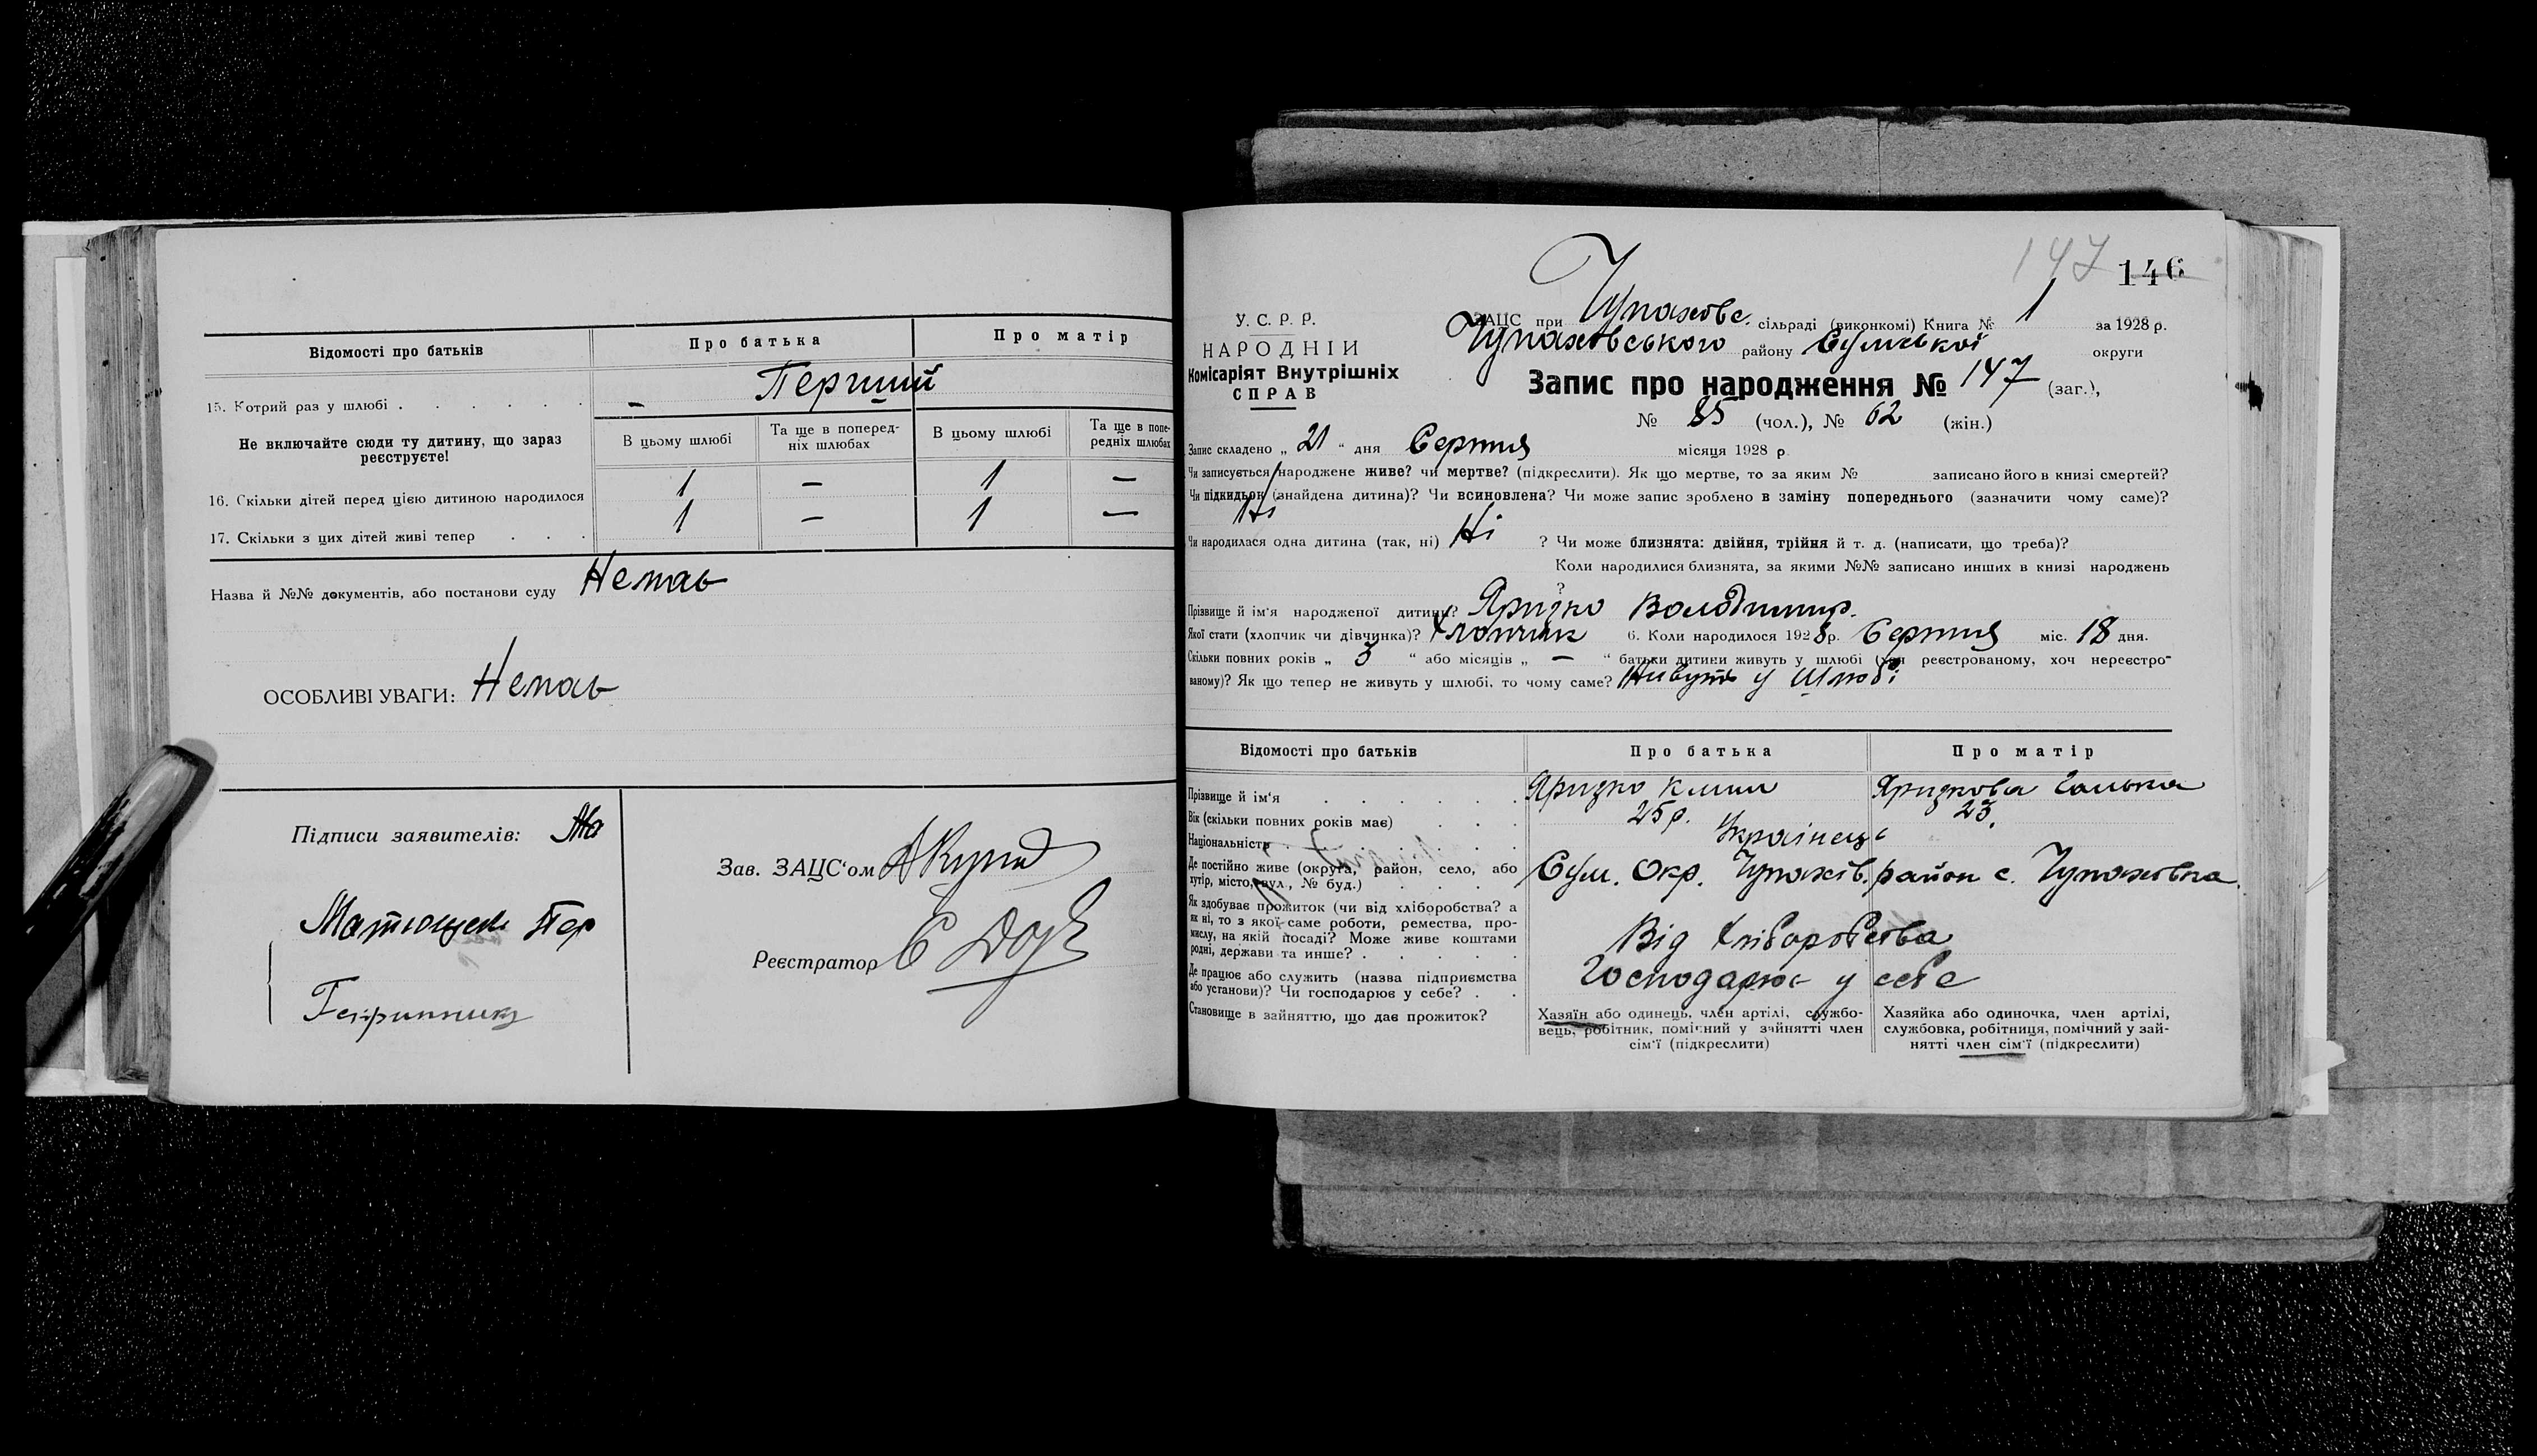 Відомості про батьків
Про батька
Про матір
15. Котрий раз у шлюбі . . . . . .
– Перший
Не включайте сюди ту дитину, що зараз
реєструєте!
В цьому шлюбі
Та ще в поперед-
ніх шлюбах
В цьому шлюбі
Та ще в попе-
редніх шлюбах
16. Скільки дітей перед цією дитиною народилося
1 – 1 –
17. Скільки з цих дітей живі тепер . . .
1 – 1 –
Назва й №№ документів, або постанови суду Немає
ОСОБЛИВІ УВАГИ: Немає
Підписи заявителів:
Зав. ЗАЦС'ом
Реєстратор
147
146
У. С. Р. Р.
НАРОДНІЙ
Комісаріят Внутрішніх
СПРАВ
ЗАЦС при Чупаховс. сільраді (виконкомі) Книга № 1 за 1928 р.
Чупаховського району Сумської округи
Запис про народження № 147 (заг.),
№ 85 (чол.), № 62 (жін.)
Запис складено „ 21 “ дня Серпня місяця 1928 р
Чи записується народжене живе? чи мертве? (підкреслити). Як що мертве, то за яким № записано його в книзі смертей?
Чи підкидьок (знайдена дитина)? Чи всиновлена? Чи може запис зроблено в заміну попереднього (зазначити чому саме)?
Ні
Чи народилася одна дитина (так, ні) Ні ? Чи може близнята: двійня, трійня й т. д. (написати, що треба)?
Коли народилися близнята, за якими №№ записано инших в книзі народжень
?
Прізвище й ім'я народженої дитини? Яризко Володимир.
Якої стати (хлопчик чи дівчинка)? Хлопчик 6. Коли народилося 1928 р. Серпня міс. 18 дня.
Скільки повних років „ 3 “ або місяців „ – “ батьки дитини живуть у шлюбі (хоч реєстрованому, хоч нереєстро-
ваному)? Як що тепер не живуть у шлюбі, то чому саме? Живуть у Шлюбі
Відомості про батьків
Про батька
Про матір
Прізвище й ім'я . . . . . .
Яризко Клим
Яризкова Галька
Вік (скільки повних років має) . . .
25 р.
23.
Національність . . . . . .
Українець
Де постійно живе (округа, район, село, або
хутір, місто, вул., № буд.) . . . .
Сум. Окр. Чупахів. район с. Чупахівка.
Як здобуває прожиток (чи від хліборобства? а
як ні, то з якої саме роботи, ремества, про-
мислу, на якій посаді? Може живе коштами
родні, держави та инше? . . . . .
Від Хліборобства
Де працює або служить (назва підприємства
або установи)? Чи господарює у себе? . .
Господарює у себе
Становище в зайняттю, що дає прожиток?
Хазяїн або одинець, член артілі, службо-
вець, робітник, помічний у зайнятті член
сім'ї (підкреслити)
Хазяйка або одиночка, член артілі,
службовка, робітниця, помічний у зай-
нятті член сім'ї (підкреслити)